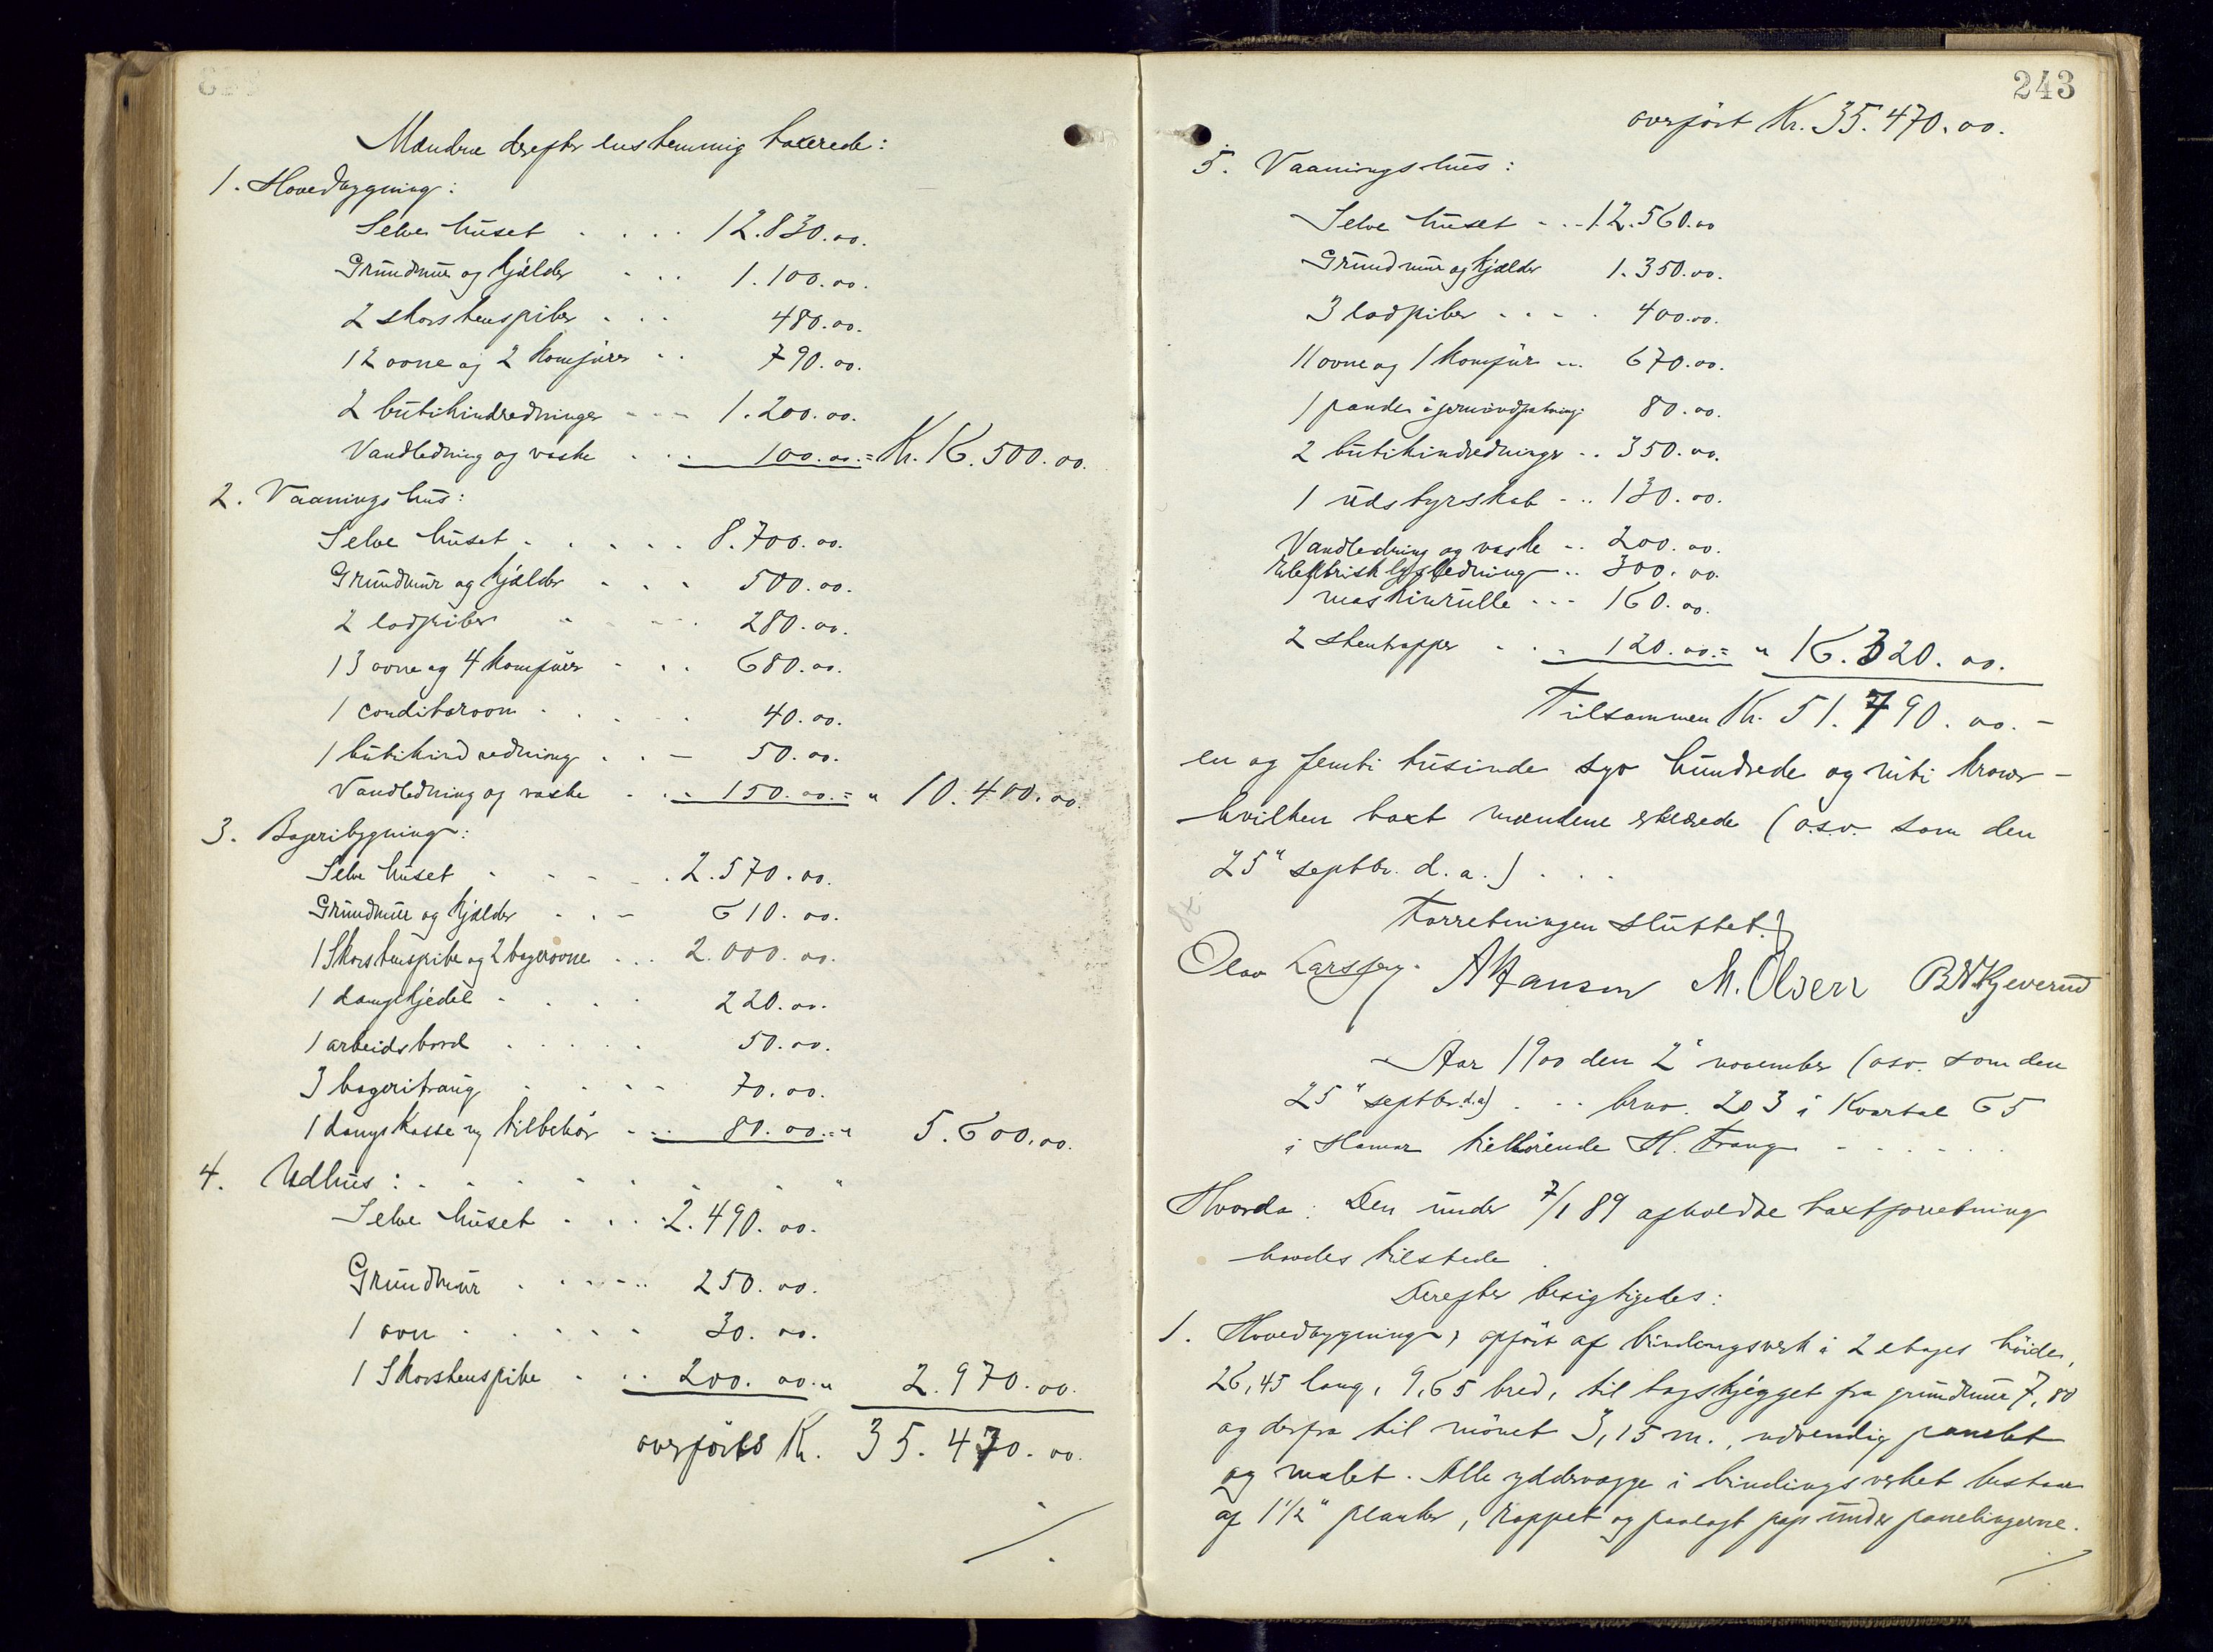 Mændne derefter enstemmig taxerede:
1. Hovedbygning:
Selve huset . . . . 12.830.oo.
Grundmur og kjælder . . . 1.100.oo.
2 skorstenspiber . . . 480.oo.
12 ovne og 2 komfurer . . 790.oo.
2 butikindredninger - - - 1.200.oo.
Vandledning og vaske . . . 100.oo. = Kr. 16.500.oo.
2. Vaaningshus:
Selve huset . . . . . 8.700.oo.
Grundmur og kjælder . . . 500.oo.
2 ladpiber . . . . 280.oo.
13 ovne og 4 komfurer . . . 680.oo.
1 conditorovn . . . . . 40.oo.
1 butikindredning . . - 50.oo.
Vandledning og vaske . . - 150.oo. = " 10.400.oo.
3. Bageribygning:
Selve huset . . . . . 2.570.oo.
Grundmur og kjælder . . - 610.oo.
1 Skorstenspibe og 2 bagerovne . . . 2.000.oo.
1 dampkjedel . . . . 220.oo.
1 arbeidsbord . . . . . 50.oo.
3 bageritraug . . . . 70.oo.
1 dampkasse og tilbehør . . . 80.oo. = " 5.600.oo.
4. Udhus: . . . . . . . "
Selve huset . . . . 2.490.oo.
Grundmur . . . . . . 250.oo.
1 ovn . . . . . 30.oo.
1 Skorstenspibe . . . 200.oo. " 2.970.oo.
overføres Kr. 35.470.oo.
243
overført Kr. 35.470.oo.
5. Vaaningshus:
Selve huset - . . 12.560.oo
Grundmur og kjælder 1.350.oo.
3 ladpiber . . . . 400.oo.
11 ovne og 1 komfur . . . 670.oo.
1 pande i jernindfatning 80.oo.
2 butikindredninger . . 350.oo.
1 udstyrskab - . . 130.oo.
Vandledning og vaske . . 200.oo.
Elektrisk lysledning . . 300.oo.
1 maskinrulle - - - 160.oo.
2 stentrapper . . . 120.oo. = " 16.320.oo.
Tilsammen Kr. 51.790.oo. -
en og femti tusinde syv hundrede og niti kroner -
hvilken taxt mændene erklærede (o.s.v. som den
25" septbr. d. a.) . . .
Forretningen sluttet.
Olav Larssen. A Hanson M. Olsen
Aar 1900 den 2" november (osv. som den
25" septbr. d.a) . . . brno. 203 i Kvartal 65
i Hamar tilhørende H. Frang - - . . . .
Hvorda: Den under 7/1 89 afholdte taxtforretning
havdes tilstede.
Derefter besigtigedes:
1. Hovedbygning, opført af bindingsverk i 2 etages høide,
26,45 lang, 9,65 bred, til tagskjegget fra grundmur 7,80
og derfra til mønet 3,15 m., udvendig panelet
og malet. Alle yddervægge i bindingsverket bestaar
af 1 1/2" planker, rappet og paalagt pap under panelingerne.